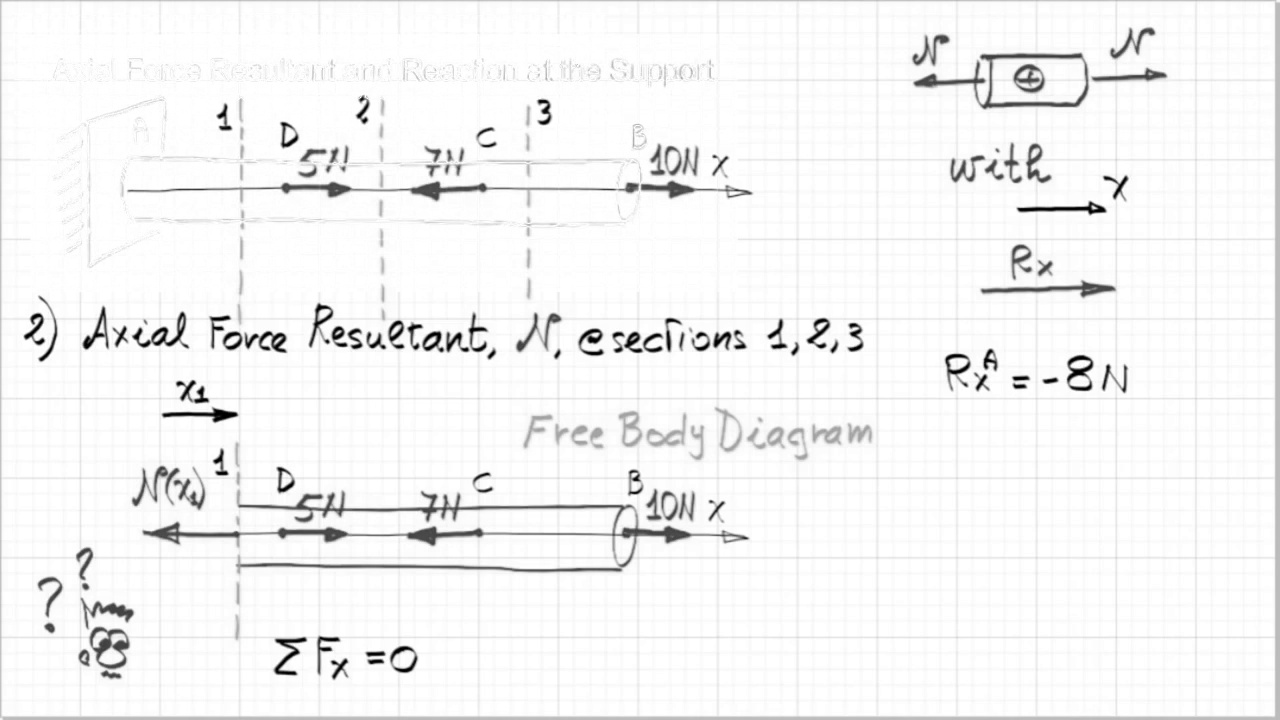 Axial Force Resultant and Reaction at the Support
N N
A 1 D 5N 2 7N C 3 B 10N x
with
x
Rx
2) Axial Force Resultant, N, @sections 1,2,3
RxA = -8N
x1
Free Body Diagram
N(x1) 1 D 5N 7N C B 10N x
? ?
ΣFx =0